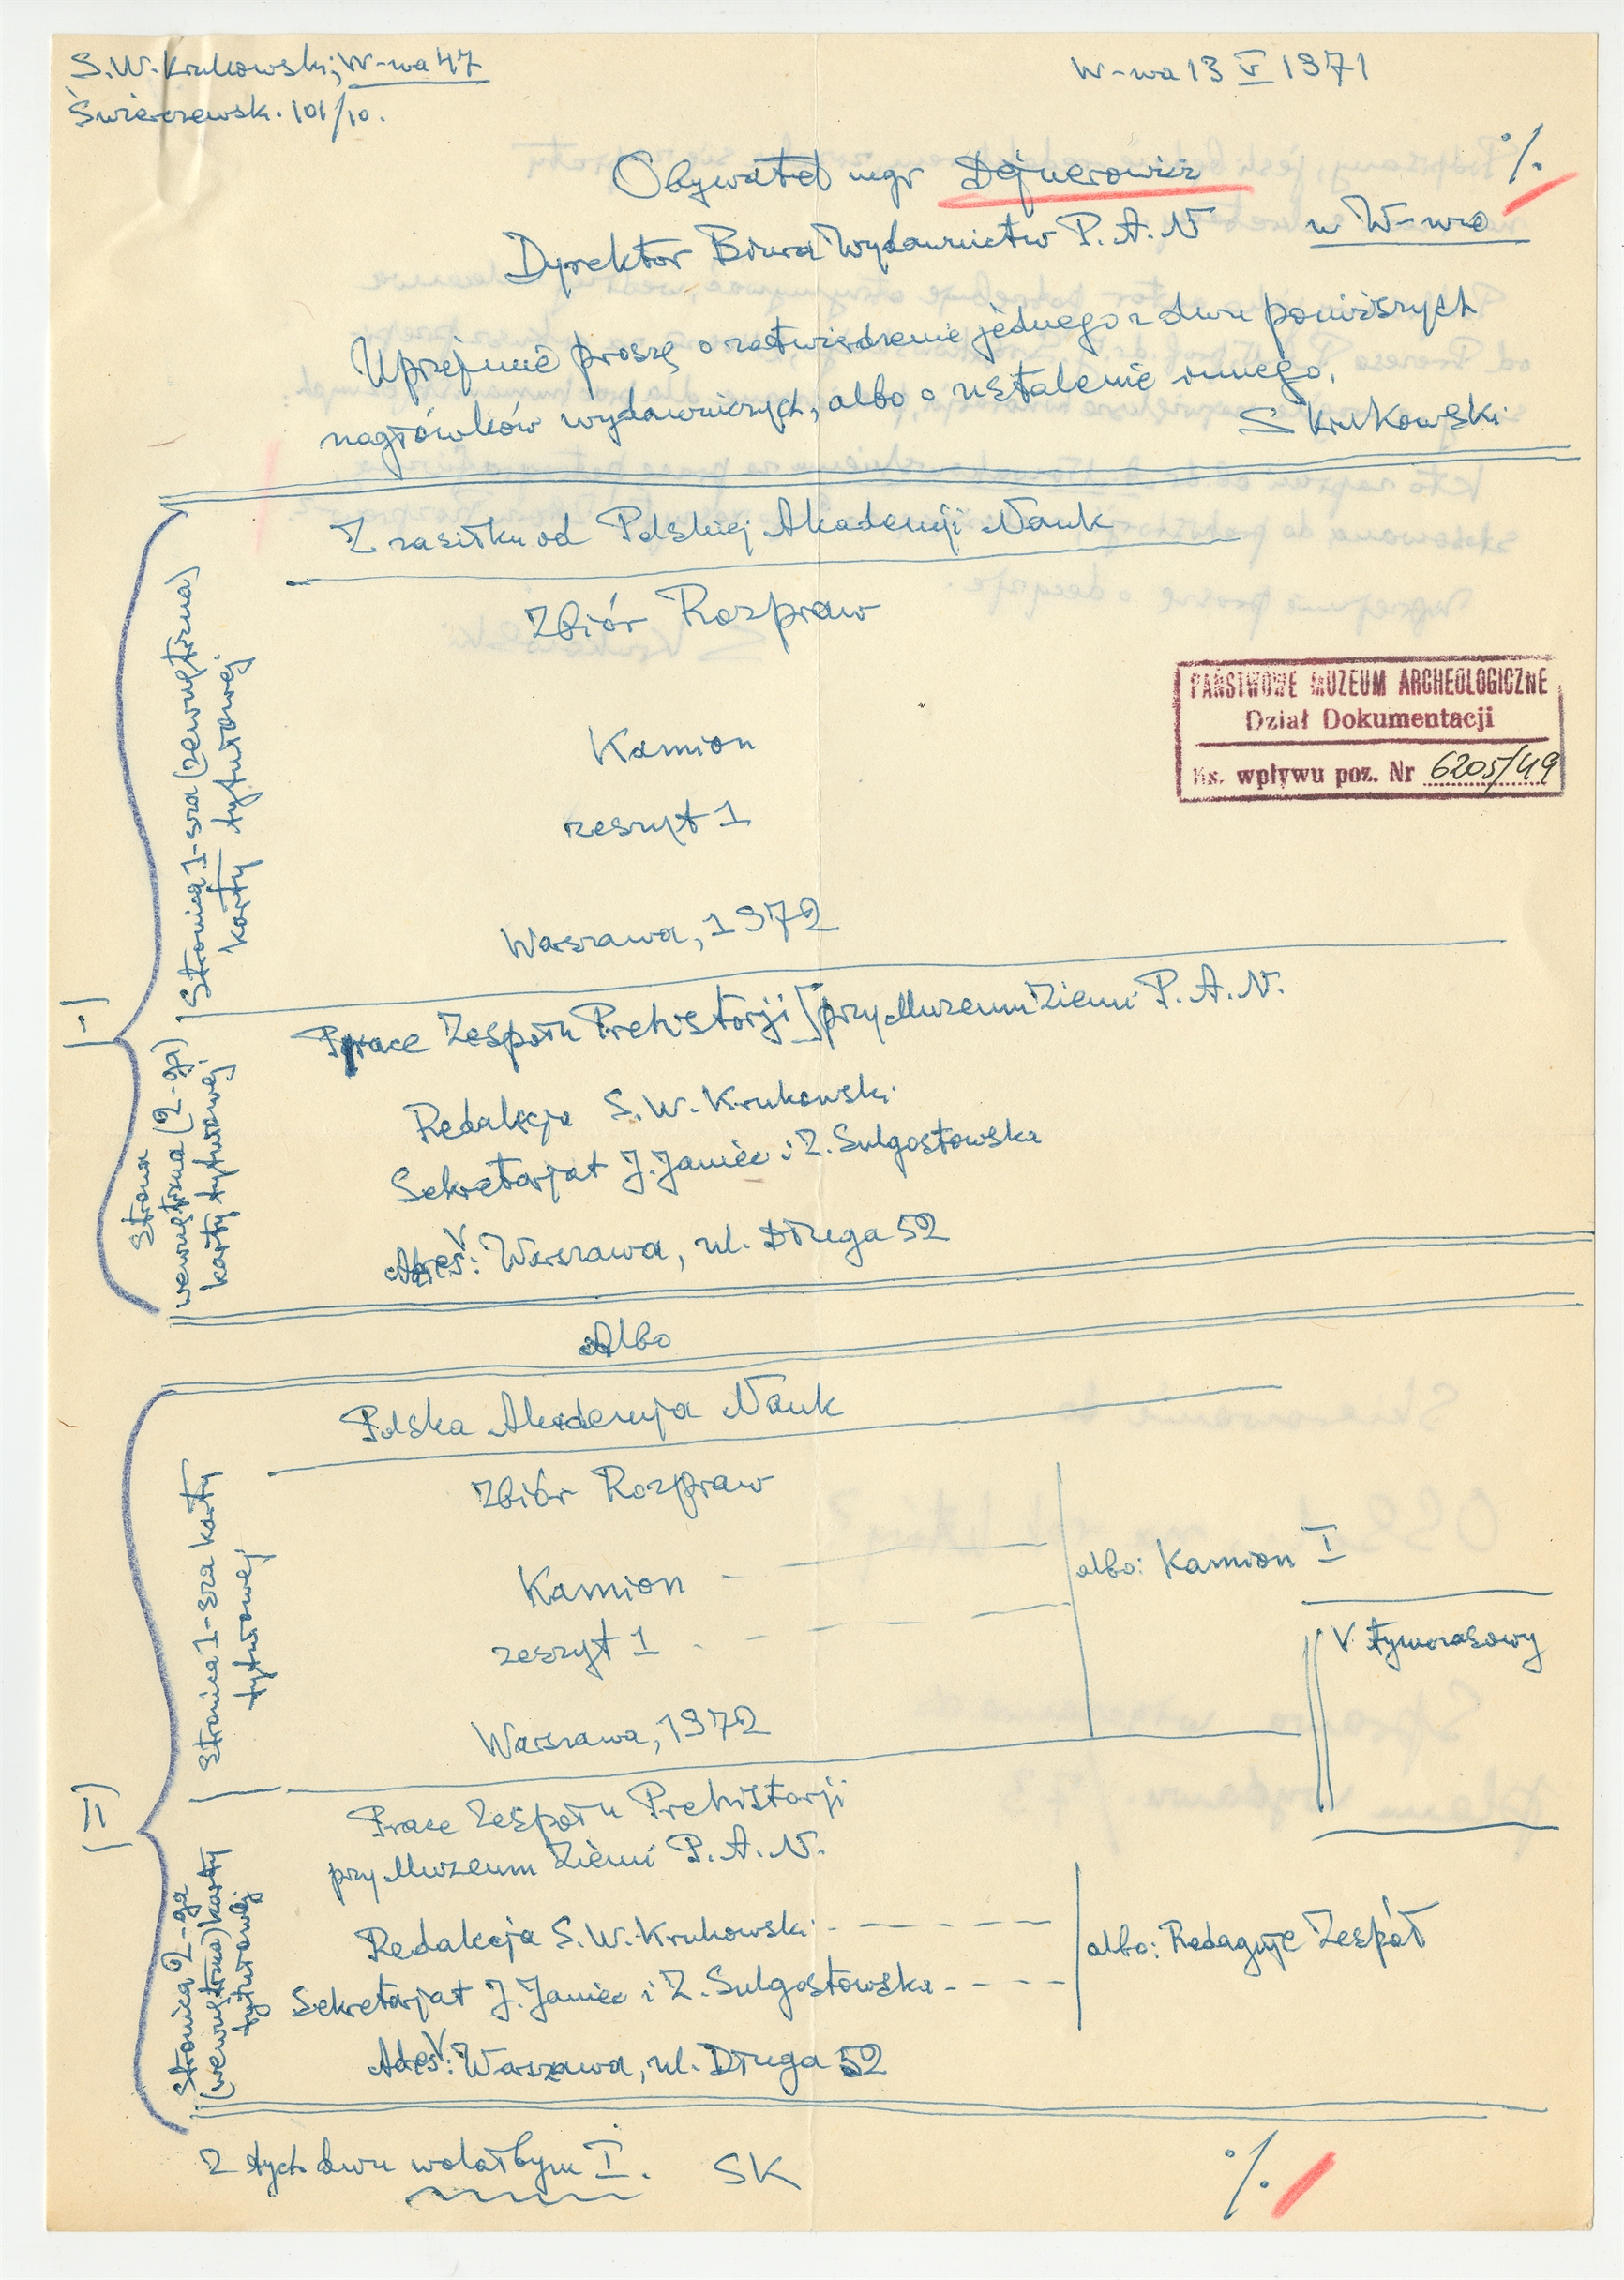 S.W. Krukowski; W-wa 47
Świerczewsk. 101/10.
W-wa 13 V 1971
Obywatel mgr Dejnerowicz
·/.
Dyrektor Biura Wydawnictw P.A.N w W-wie
Uprzejmie proszę o zatwierdzenie jednego z dwu poniższych
nagłówków wydawniczych, albo o ustalenie innego.
S Krukowski
I
Stronica 1-sza (zewnętrzna)
karty tytułowej
Z zasiłku od Polskiej Akademji Nauk
Zbiór Rozpraw
Kamion
zeszyt 1
Warszawa, 1972
PAŃSTWOWE MUZEUM ARCHEOLOGICZNE
Dział Dokumentacji
Ks. wpływu poz. Nr 6205/49
Strona
wewnętrzna (2-ga)
karty tytułowej
Prace Zespołu Prehistorji [przy Muzeum Ziemi P.A.N.
Redakcja S.W. Krukowski
Sekretarjat J. Janiec i Z. Sulgostowska
Adres: Warszawa, ul. Długa 52
Albo
II
Stronica 1-sza karty
tytułowej
Polska Akademja Nauk
Zbiór Rozpraw
Kamion
zeszyt 1
albo: Kamion I
V tymczasowy
Warszawa, 1972
Stronica 2-ga
(wewnętrzna) karty
tytułowej
Prace Zespołu Prehistorji
przy Muzeum Ziemi P.A.N.
Redakcja S.W. Krukowski
Sekretarjat J. Janiec i Z. Sulgostowska
albo: Redaguje Zespół
Adres: Warszawa, ul. Długa 52
Z tych dwu wolałbym I. SK
·/.